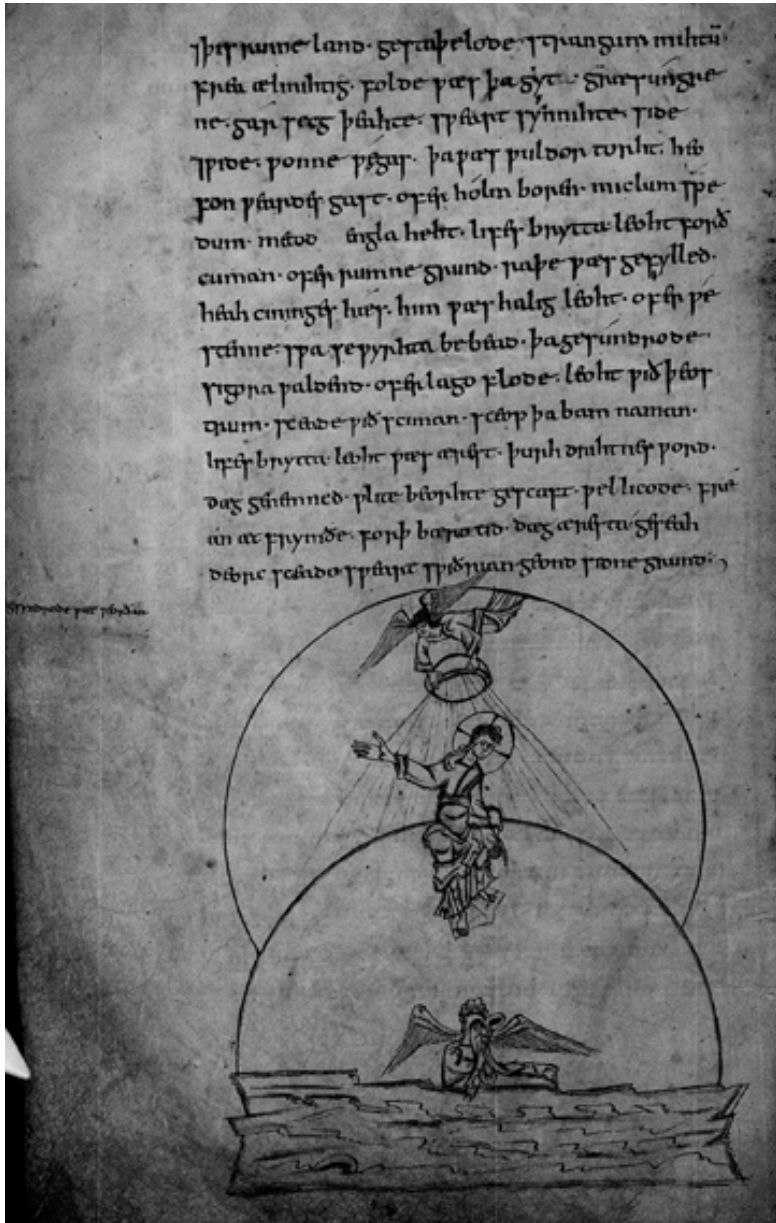 ⁊þis rume land· gestaþelode· strangum mihtū·
frea ælmihtig· folde ƿæs þa gyt· græs ungre
ne· gar secg þeahte· sƿeart synnihte· side
⁊ƿide· ƿonne ƿegas· þa ƿæs ƿuldor torht· heo
fon ƿeardes gast· ofer holm boren· miclum spe
dum· metod engla heht· lifes brytta leoht forð
cuman· ofer rumne grund· raþe ƿæs gefylled·
heah cininges hæs· him ƿæs halig leoht· ofer ƿe
stenne· sƿa se ƿyrhta bebead· þa gesundrode·
sigora ƿaldend· ofer lago flode· leoht ƿið þeos
trum· sceade ƿið sciman· sceop þa bam naman·
lifes brytta· leoht ƿæs ærest· þurh drihtnes ƿord·
dæg genemned· ƿlite beorhte gesceaft· ƿel licode· fre
an æt frymðe· forþ bæro tid· dæg æresta geseah
deorc sceado sƿeart sƿiðrian geond sidne grund·